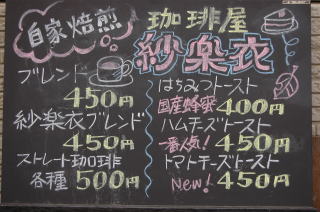 自家焙煎
珈琲屋
紗楽衣
ブレンド
450円
紗楽衣ブレンド
450円
ストレート珈琲
各種 500円
はちみつトースト
国産蜂蜜 400円
ハムチーズトースト
一番人気! 450円
トマトチーズトースト
New! 450円